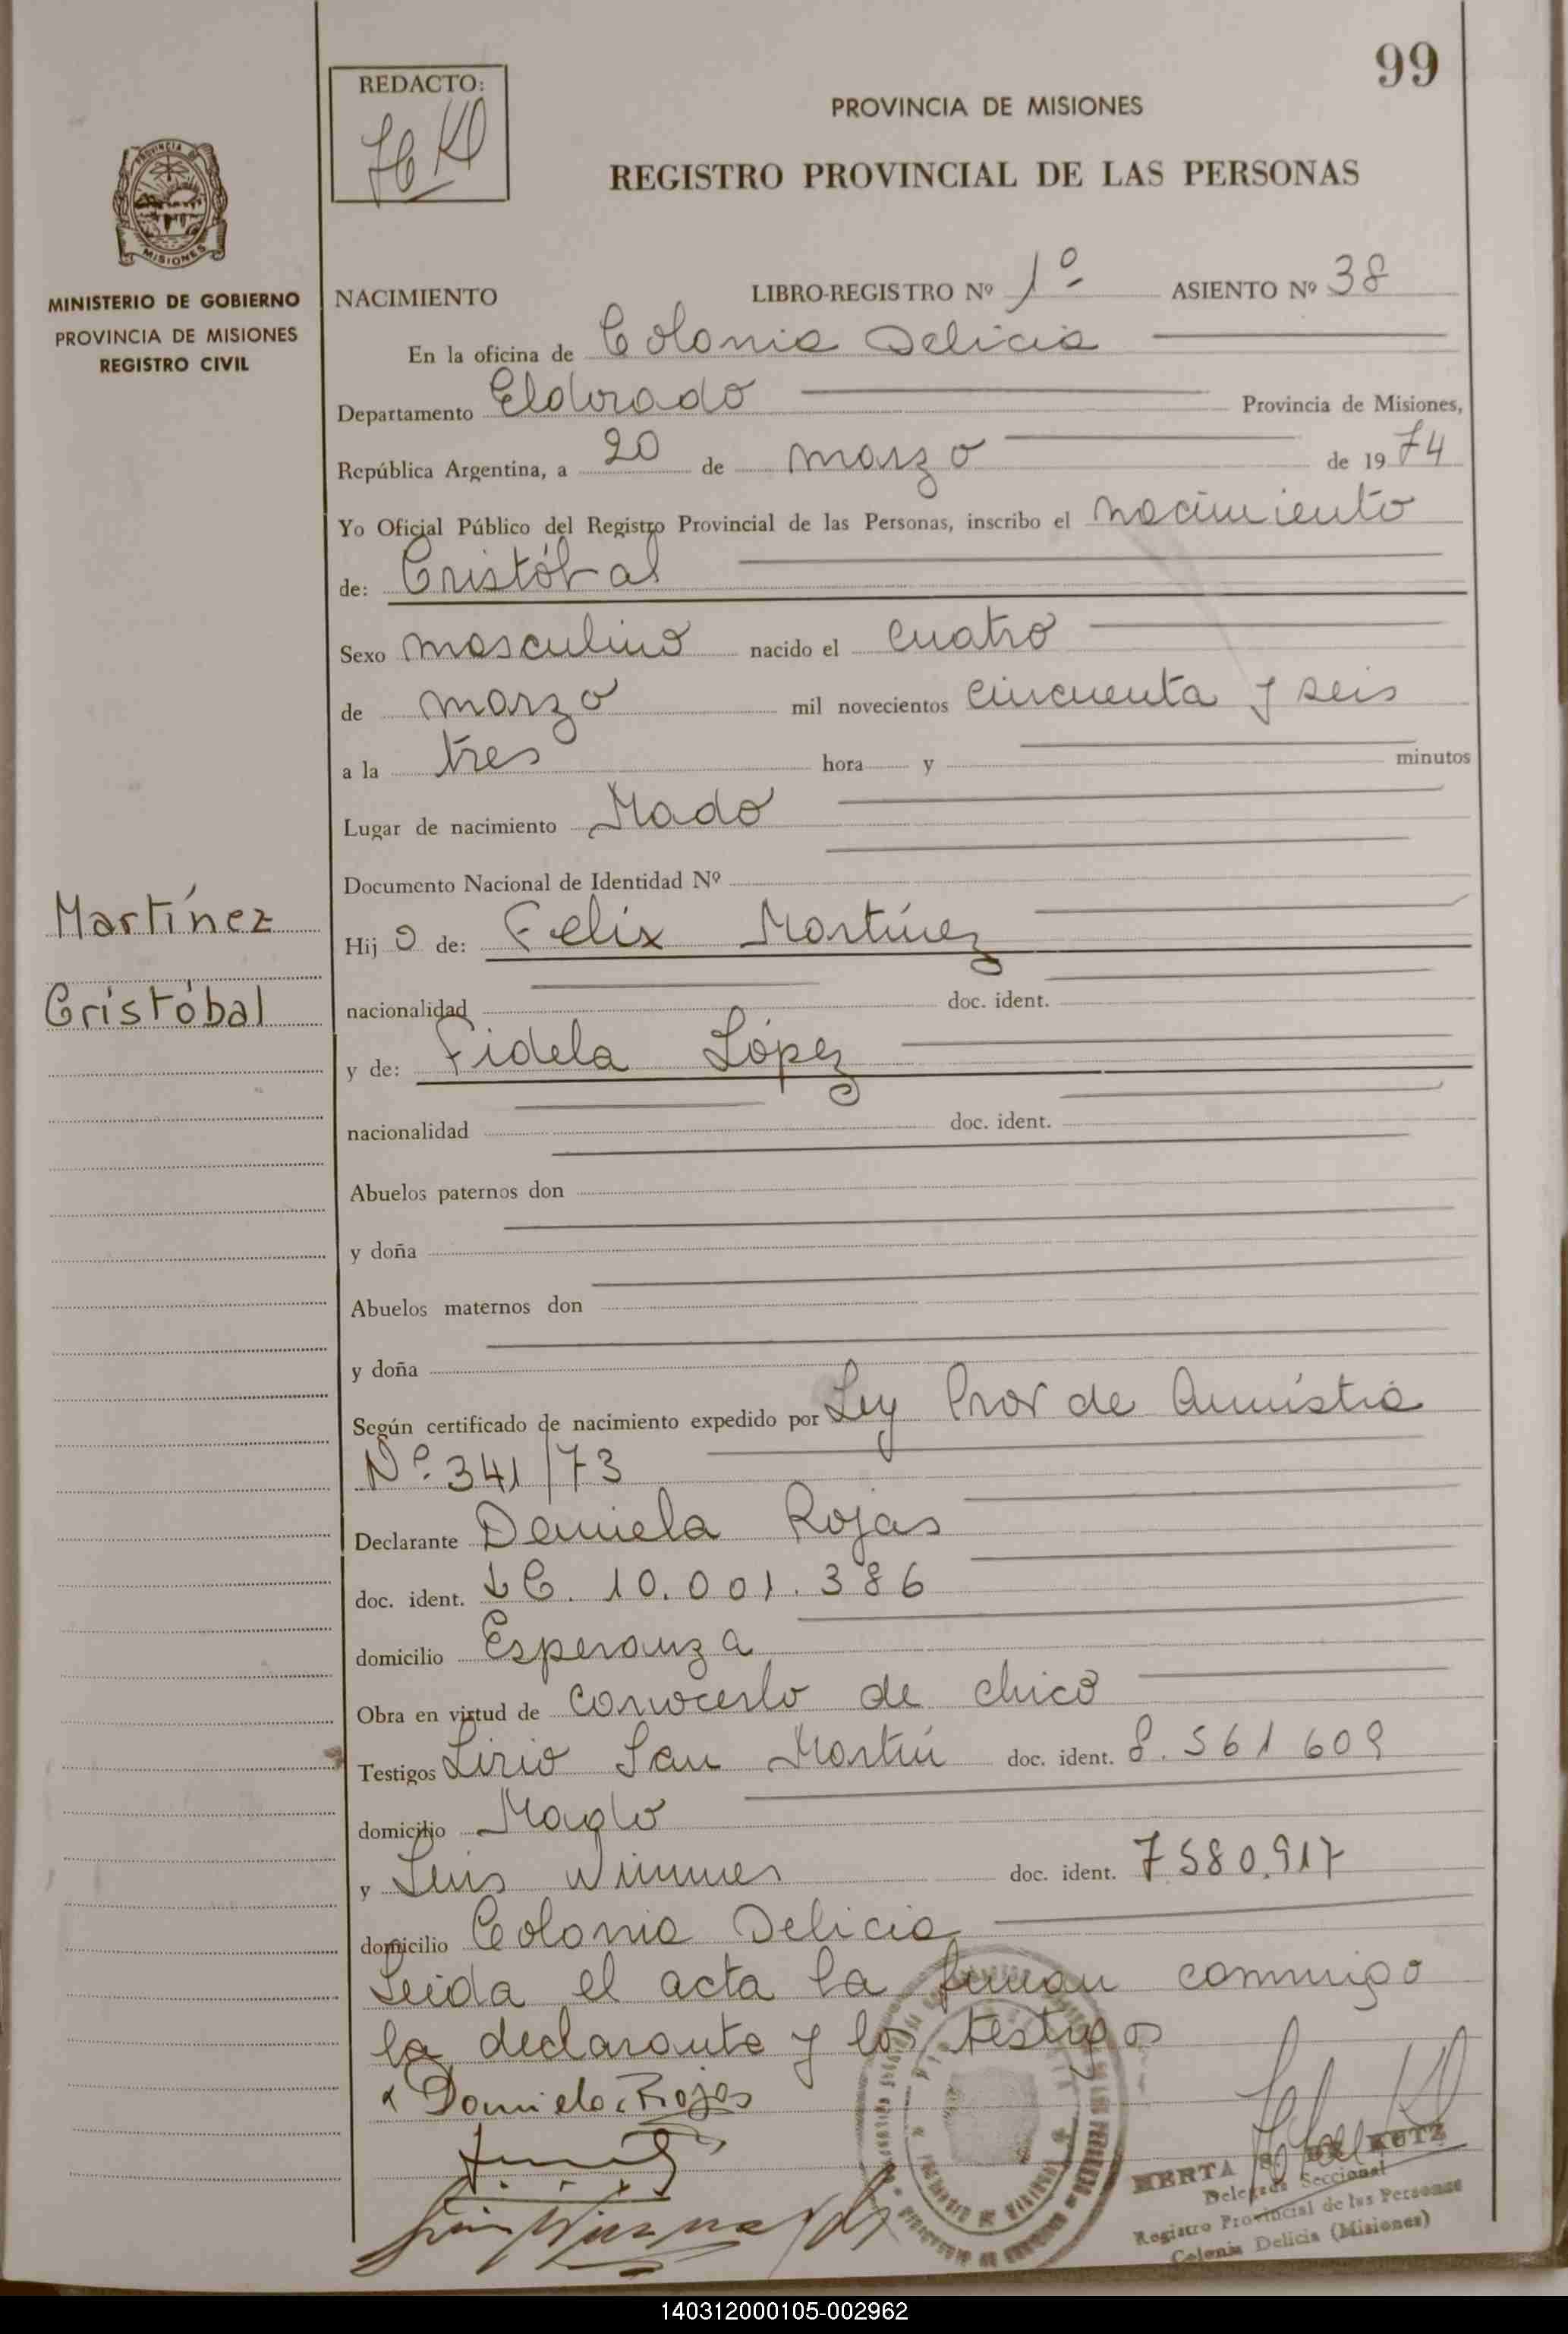 99
REDACTO:
PROVINCIA DE MISIONES
REGISTRO PROVINCIAL DE LAS PERSONAS
PROVINCIA DE
MISIONES
MINISTERIO DE GOBIERNO
PROVINCIA DE MISIONES
REGISTRO CIVIL
NACIMIENTO LIBRO-REGISTRO Nº 1º ASIENTO Nº 38
En la oficina de Colonia Delicia
Departamento Eldorado Provincia de Misiones,
República Argentina, a 20 de marzo de 1974
Yo Oficial Público del Registro Provincial de las Personas, inscribo el nacimiento
de: Cristóbal
Sexo masculino nacido el cuatro
de marzo mil novecientos cincuenta y seis
a la tres hora y minutos
Lugar de nacimiento Mado
Documento Nacional de Identidad Nº
Martínez
Hijo de: Felix Martínez
Cristóbal
nacionalidad doc. ident.
y de: Fidela López
nacionalidad doc. ident.
Abuelos paternos don
y doña
Abuelos maternos don
y doña
Según certificado de nacimiento expedido por Ley Prov de Amnistia
Nº 341/73
Declarante Daniela Rojas
doc. ident. LC. 10.001.386
domicilio Esperanza
Obra en virtud de conocerlo de chico
Testigos Lirio San Martín doc. ident. 8.561609
domicilio Mado
y Luis doc. ident. 7580.917
domicilio Colonia Delicia
Leida el acta la firman conmigo
la declarante y los testigos
Daniela Rojas
HERTA KUTZ
Delegada Seccional
Registro Provincial de las Personas
Colonia Delicia (Misiones)
140312000105-002962